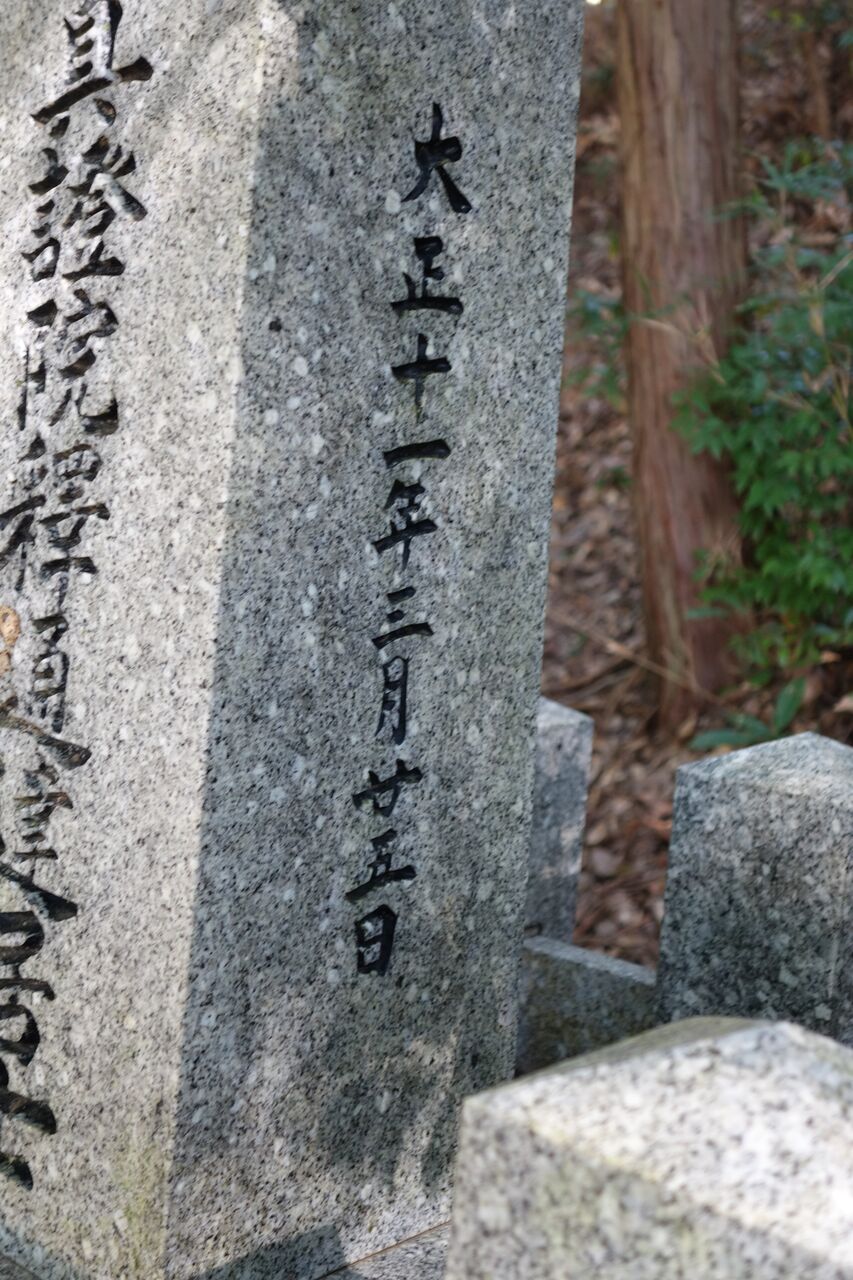 大正十一年三月廿五日
真證院釋